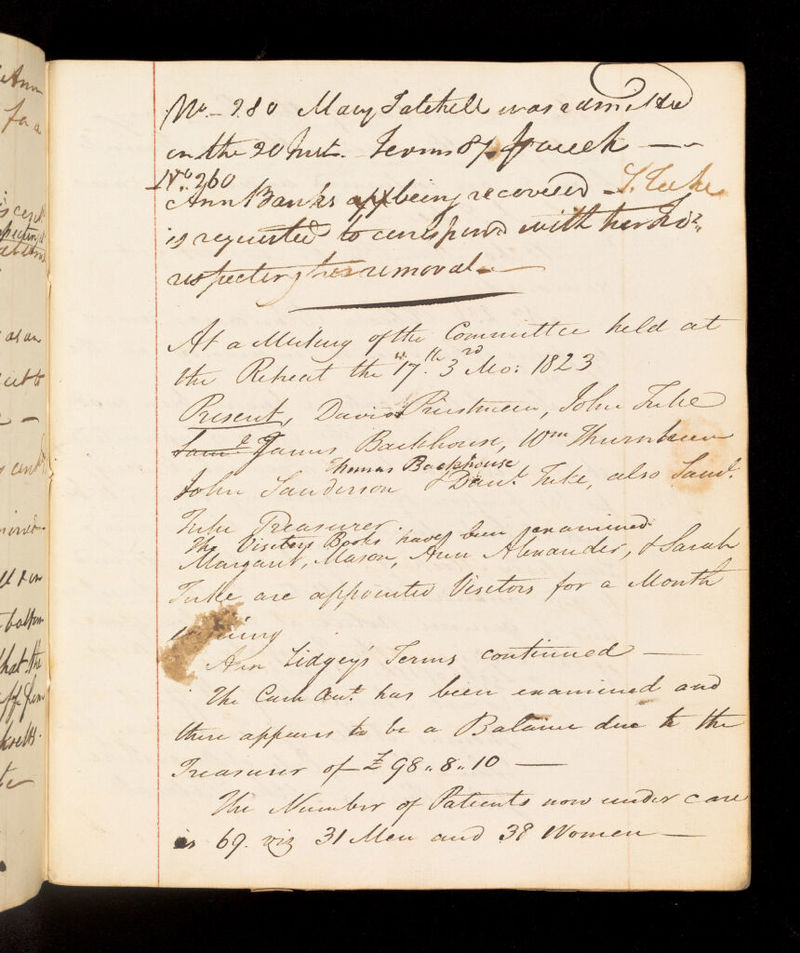 No. 280 Mary Tatchell was admitted
on the 20 Inst. Terms 8/. pr week —
No. 260
Ann Banks being recovered S. Tuke
is requested to correspond with her
respecting her removal. —
At a Meeting of the Committee held at
the Retreat the 17th. 3rd Mo: 1823
Present, David Priestman, John Tuke
Saml. T James Backhouse, Wm Thurnham
Thomas Backhouse
John Sanderson & Danl. Tuke, also Saml.
Tuke Treasurer.
The Visitors Books have been examined.
Margaret, Mason, Ann Alexander, & Sarah
Tuke are appointed Visitors for a Month
Ann Lidgey's Terms continued —
The Cash Acct. has been examined and
there appears to be a Balance due to the
Treasurer of £98.. 8.. 10 —
The Number of Patients now under care
is 69. viz 31 Men and 38 Women —